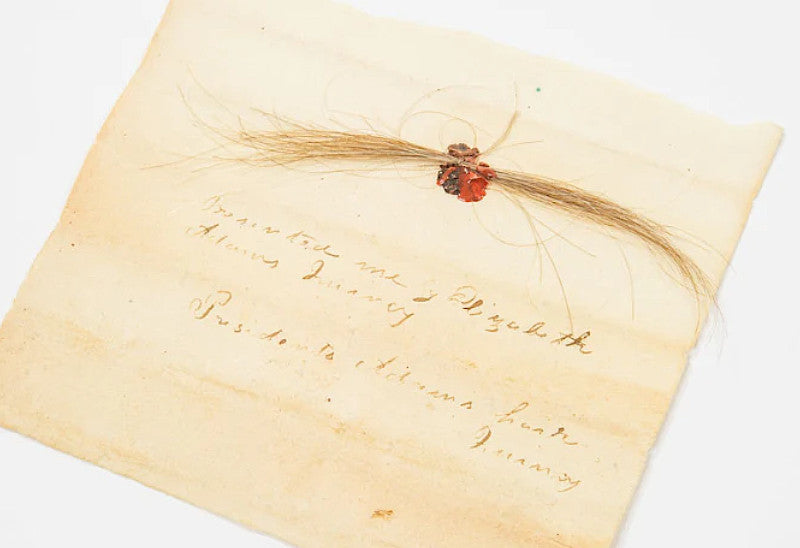 Presented me by Elizabeth
Adams Quincy
Presidents Adams hair
Quincy